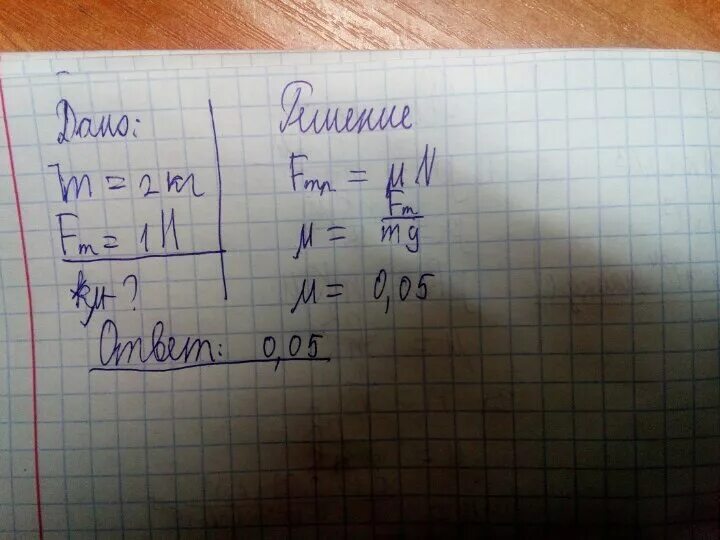 Дано:
m = 2 кг
Fт = 1 Н
μ - ?
Решение
Fтр = μ N
μ = Fт / mg
μ = 0,05
Ответ: 0,05